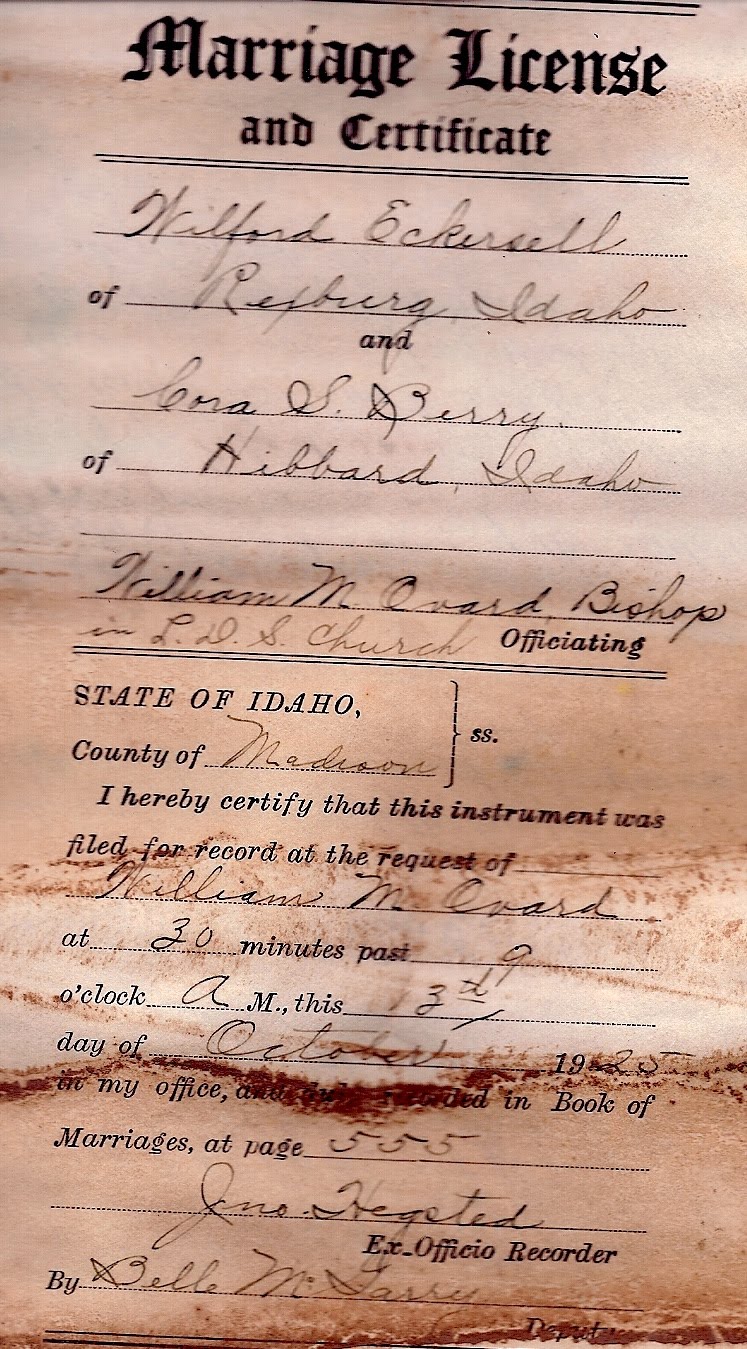 Marriage License
and Certificate
Wilford Eckersell
of Rexburg, Idaho
and
Cora S. Berry.
of Hibbard, Idaho
William M. Ovard, Bishop
in L. D. S. Church Officiating
STATE OF IDAHO,
ss.
County of Madison
I hereby certify that this instrument was
filed for record at the request of
William M. Ovard
at 30 minutes past 9
o'clock A M., this 13th
day of October 1925
in my office, and duly recorded in Book of
Marriages, at page 555
Jno. Hegsted
Ex-Officio Recorder
By Belle McGarry
Deputy